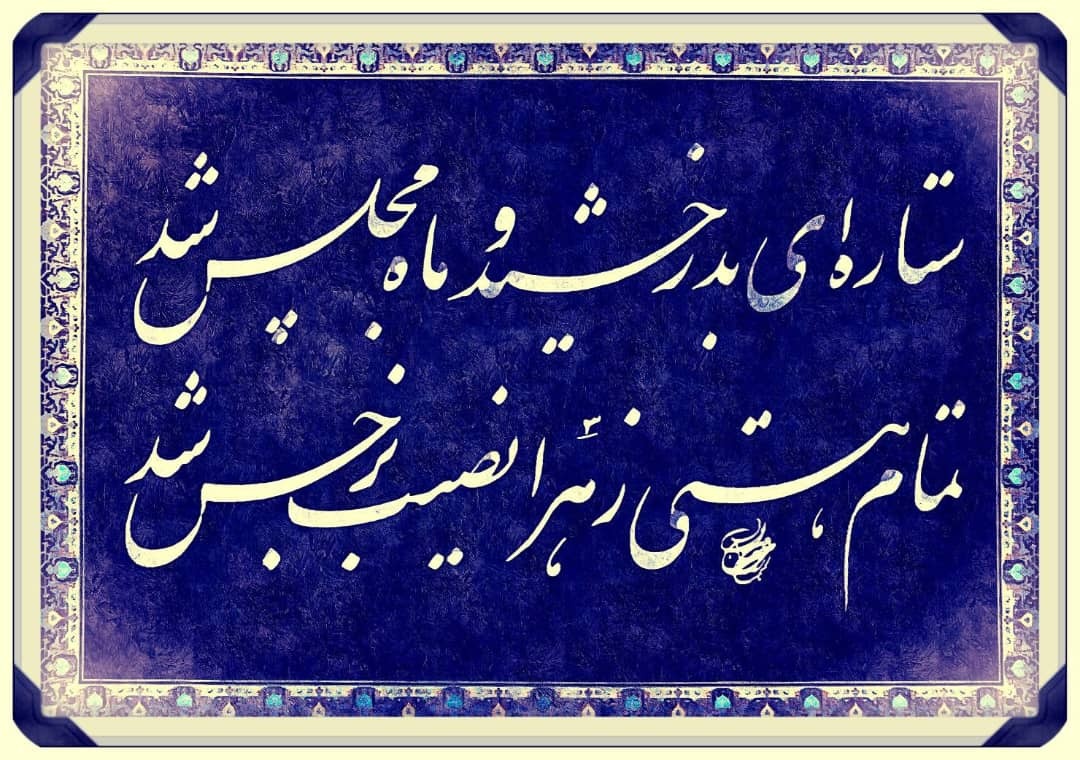 ستاره‌ای بدرخشید و ماه مجلس شد
تمام هستی زهرا نصیب نرجس شد